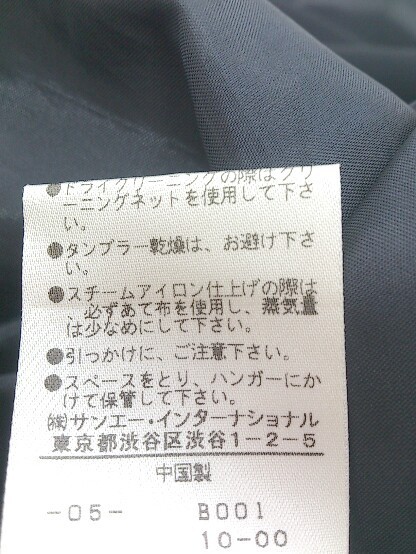 ●ドライクリーニングの際はクリ
ーニングネットを使用して下さ
い。
●タンブラー乾燥は、お避け下さ
い。
●スチームアイロン仕上げの際は
、必ずあて布を使用し、蒸気量
は少なめにして下さい。
●引っかけに、ご注意下さい。
●スペースをとり、ハンガーにか
けて保管して下さい。
㈱サンエー・インターナショナル
東京都渋谷区渋谷1-2-5
中国製
-05- B001
10-00